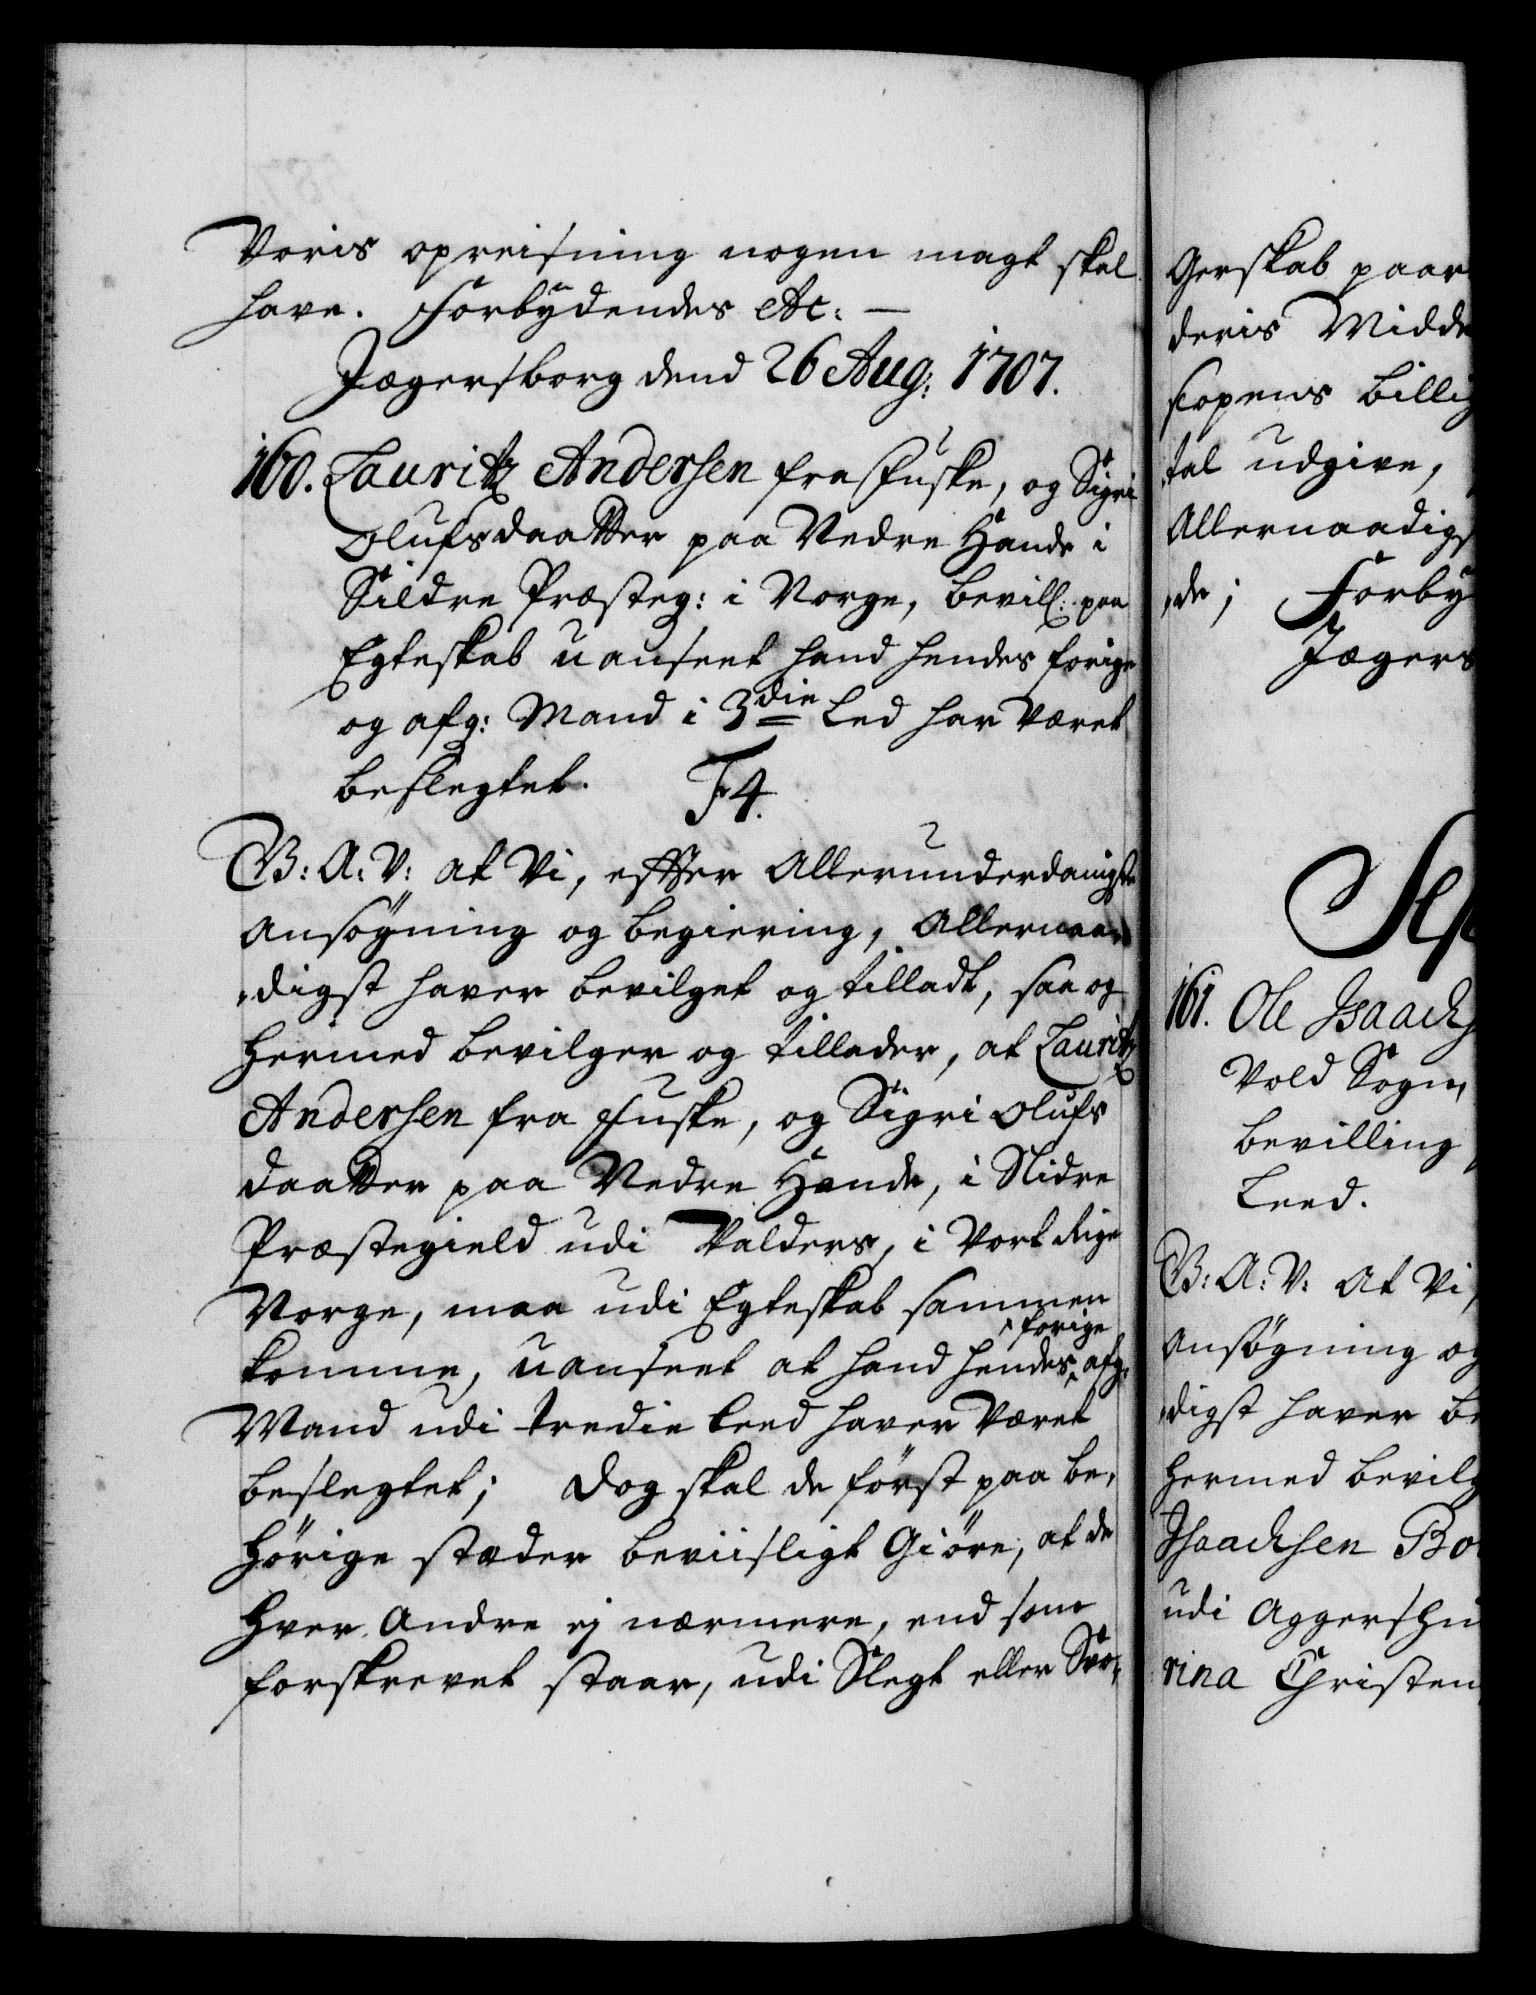 Voris opreisning nogen magt skal
have. Forbydendes etc: —
Jægersborg dend 26 Aug: 1707.
160. Lauritz Andersen fra Fuske, og Sigri
Olufsdaatter paa Nedre Hande i
Sildre Præsteg: i Norge, bevill: paa
Egteskab uanseet hand hendes forige
og afg: Mand i 3die Led har Været
beslegtet. F4.
B: A: V: at Vi, effter Allerunderdanigste
Ansøgning og begiering, Allernaa„
„digst haver bevilget og tilladt, saa og
hermed bevilger og tillader, at Lauritz
Andersen fra Fuske, og Sigri Olufs
daatter paa Nedre Hande, i Slidre
Præstegield udi Valders, i Vort Rige
Norge, maa udi Egteskab sammen
forige
komme, uanseet at hand hendes afg:
Mand udi tredie Leed haver Været
beslegtet; Dog skal de først paa be„
hørige stæder beviisligt Giøre, at de
hver Andre ej nærmere, end som
forskrevet staar, udi Slegt eller Svo„
Gerskab paar
deris Midde
scopens billig
tal udgive,
Allernaadigs
„de; Forby
Jægers
Sep
161. Ole Isaachs
Vold Sogn,
bevilling
Leed.
B: A: V: At Vi,
Ansøgning og
„digst haver be
hermed bevilg
Isaachsen Bo
udi Aggershu
rina Christen